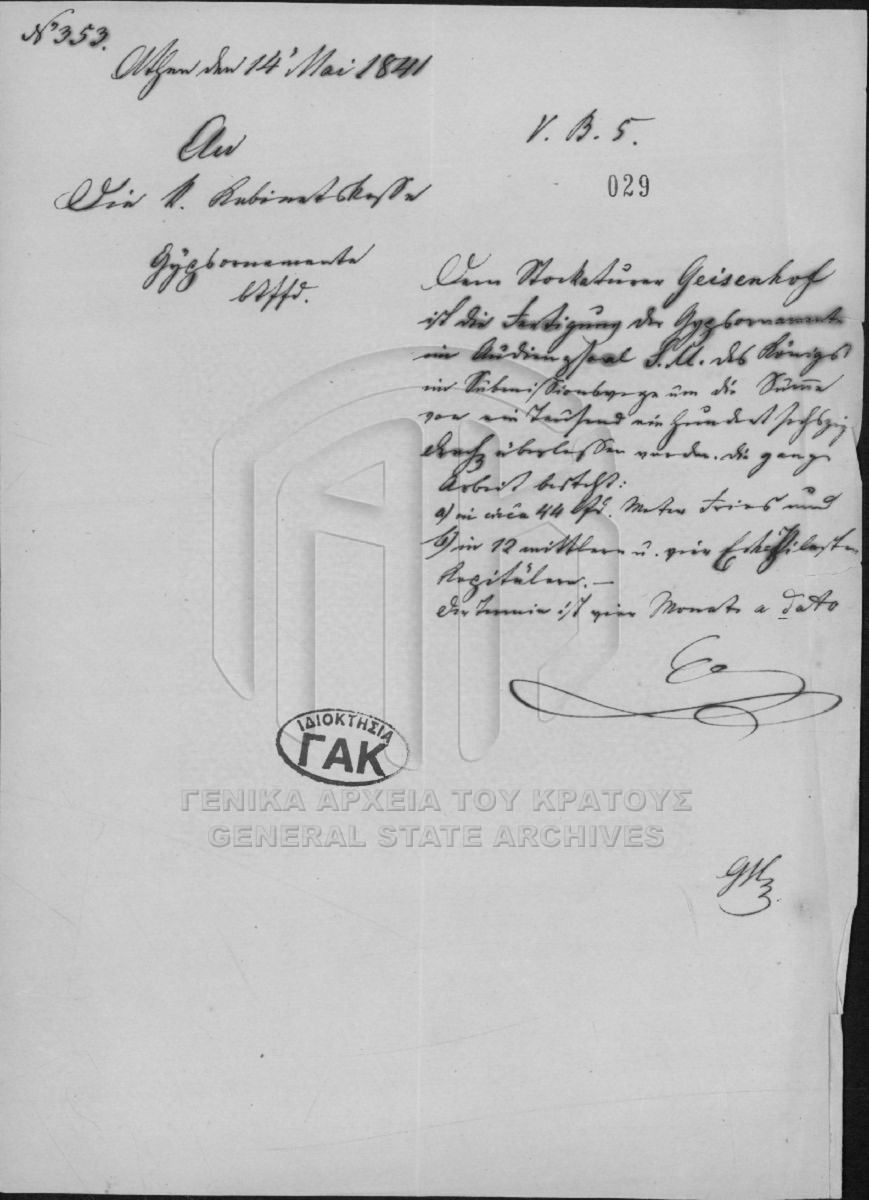 No 353.
Athen den 14' Mai 1841
V. B. 5.
029
An
Die K. Kabinetskasse
Gÿpsornamente
btffd.
Dem Stockaturer Geisenhof
ist die Fertigung der Gypsornamente
im Audienzsaal S. M. des Königs
im Submissionswege um die Summe
von ein Tausend ein hundert sechszig
Drach. überlassen worden. Die ganze
Arbeit besteht:
a) in circa 44 lfd. Meter Fries und
b) in 12 mittlern u. vier Eckpilaster
Kapitälern. —
Der Termin ist vier Monate a dato
ΙΔΙΟΚΤΗΣΙΑ
ΓΑΚ
ΓΕΝΙΚΑ ΑΡΧΕΙΑ ΤΟΥ ΚΡΑΤΟΥΣ
GENERAL STATE ARCHIVES